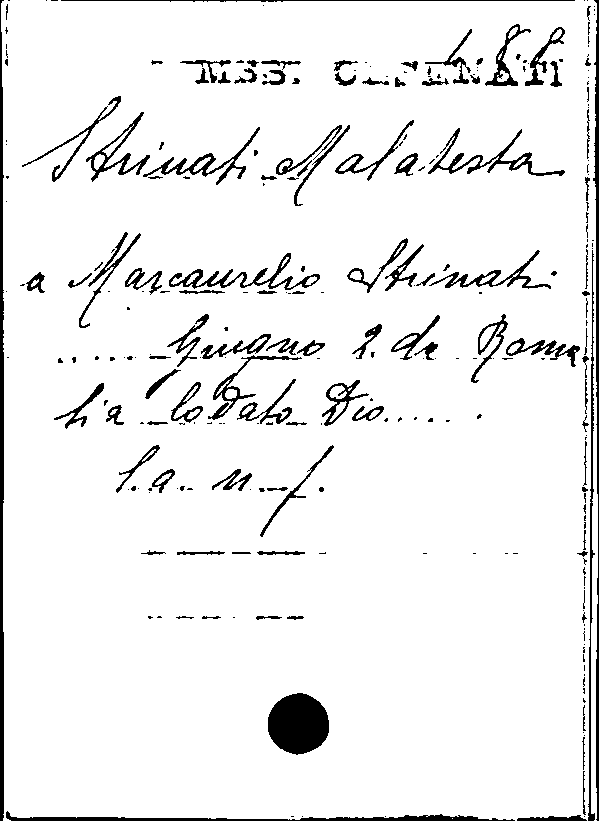 188
MSS. CESENATI
Strinati Malatesta
a Marcaurelio Strinati
..... Giugno 2. da Roma
Sia lodato Dio......
l. a. n. f.